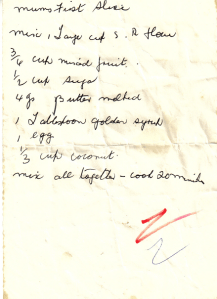 mums Fruit Slice
mix 1 Large cup S. R flour
3/4 cup mixed fruit.
1/2 cup suga
4 ozs Butter melted
1 Tablespoon golden syrup
1 egg
1/3 cup coconut.
mix all together - cook 20 minutes